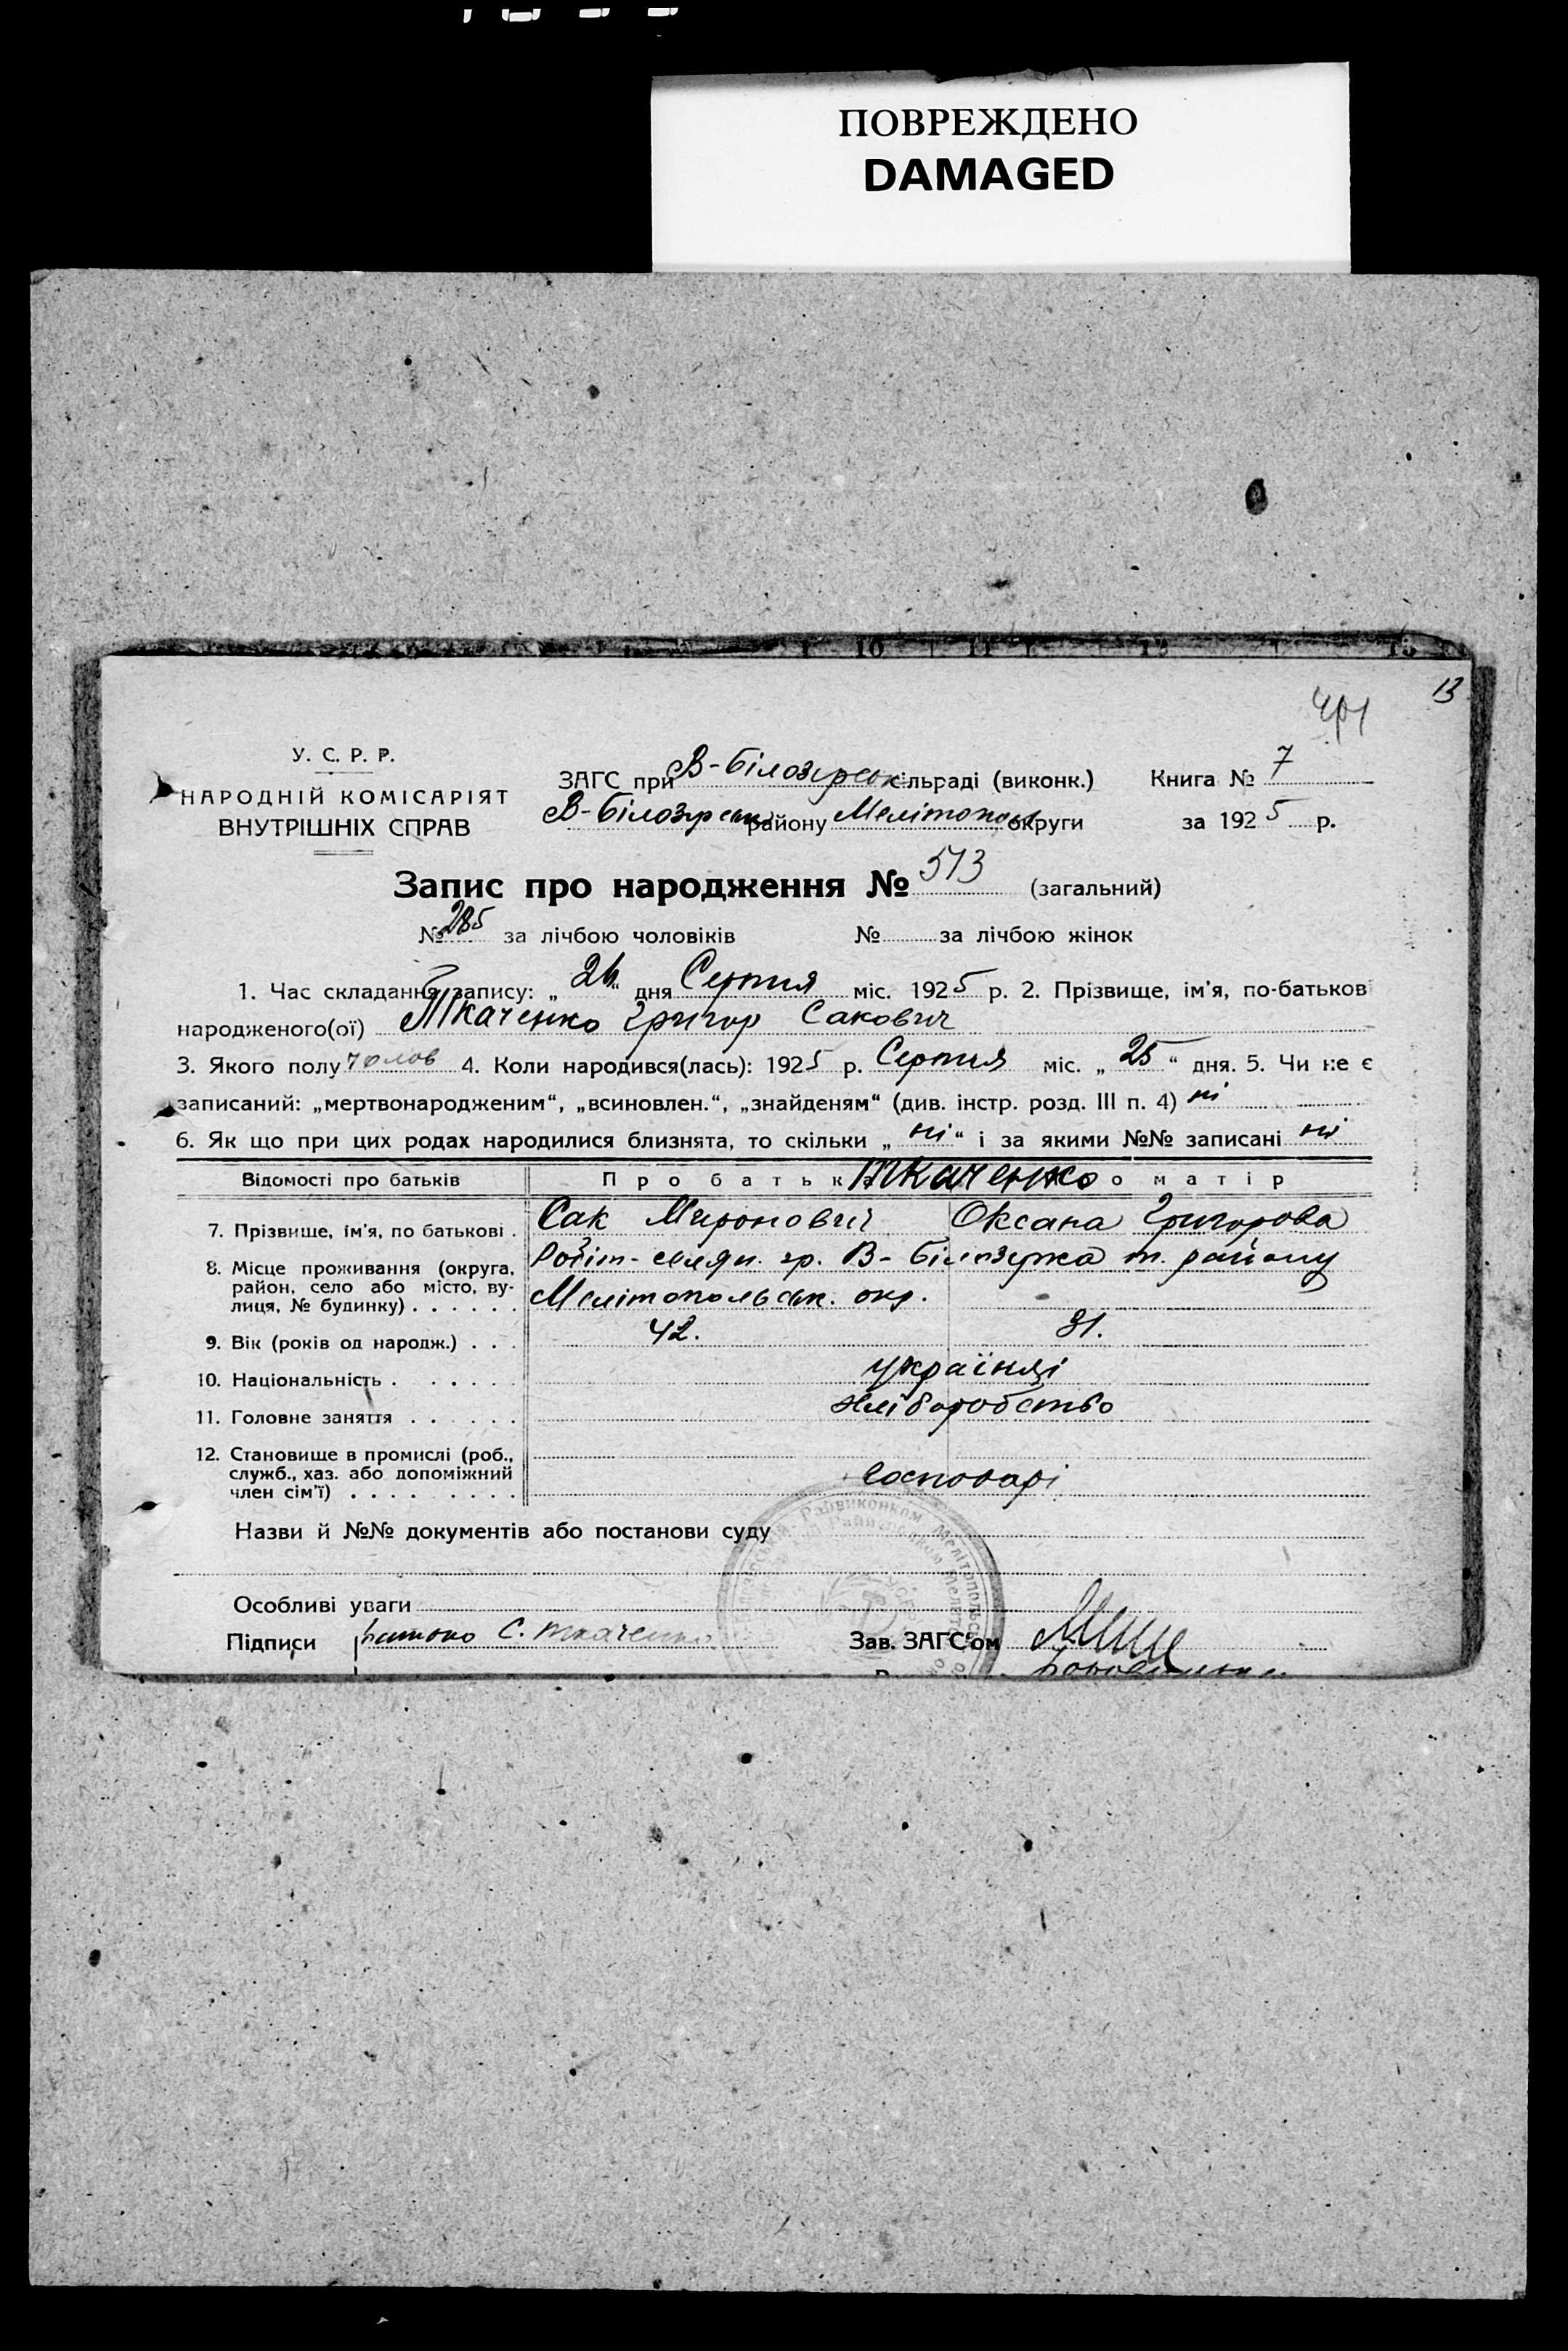 ПОВРЕЖДЕНО
DAMAGED
13
У. С. Р. Р.
НАРОДНІЙ КОМІСАРІЯТ
ВНУТРІШНІХ СПРАВ
ЗАГС при В-Білозирськ сільраді (виконк.) Книга № 7
В-Білозирськ району Мелітополь округи за 1925 р.
Запис про народження № 513 (загальний)
№ 285 за лічбою чоловіків № за лічбою жінок
1. Час складання запису: „26“ дня Серпня міс. 1925 р. 2. Прізвище, ім'я, по-батьков
народженого(ої) Ткаченко Григор Сакович
3. Якого полу чолов 4. Коли народився(лась): 1925 р. Серпня міс. „25“ дня. 5. Чи не є
записаний: „мертвонародженим“, „всиновлен.“, „знайденям“ (див. інстр. розд. III п. 4) ні
6. Як що при цих родах народилися близнята, то скільки „ні“ і за якими №№ записані ні
Відомості про батьків Про батьк Ткаченко о матір
7. Прізвище, ім'я, по батькові . Сак Миронович Оксана Григорова
8. Місце проживання (округа, Робіт-селян. гр. В-Білозирка т. району
район, село або місто, ву-
лиця, № будинку) . . . . . . Мелітопольськ. окр.
9. Вік (років од народж.) . . . 42. 31.
10. Національність . . . . . . українці
11. Головне заняття . . . . . . хліборобство
12. Становище в промислі (роб.,
служб., хаз. або допоміжний господарі
член сім'ї) . . . . . . . . .
Назви й №№ документів або постанови суду
Особливі уваги
Підписи батько С. Ткаченко Зав. ЗАГС'ом